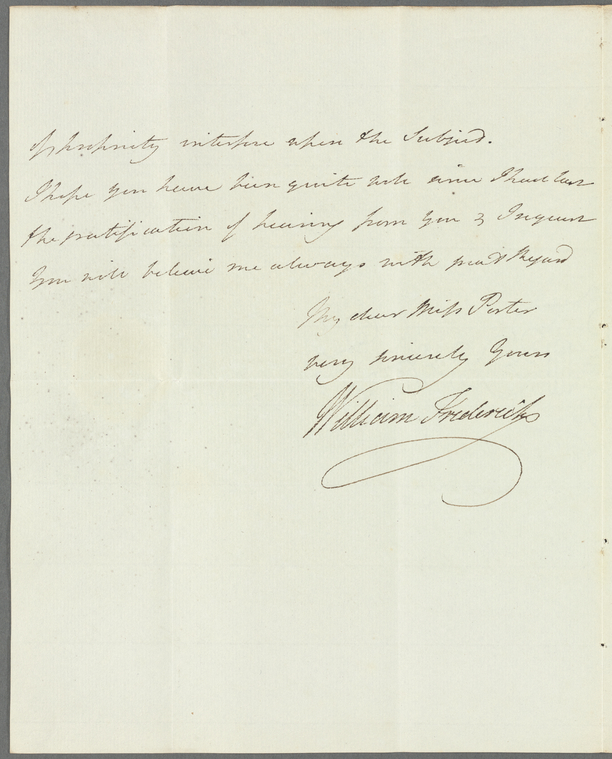 of propriety interfere upon the Subject.
I hope you have been quite well since I had last
the gratification of hearing from You & I request
You will believe me always with great Regard
My dear Miss Porter
very sincerely Yours
William Frederick